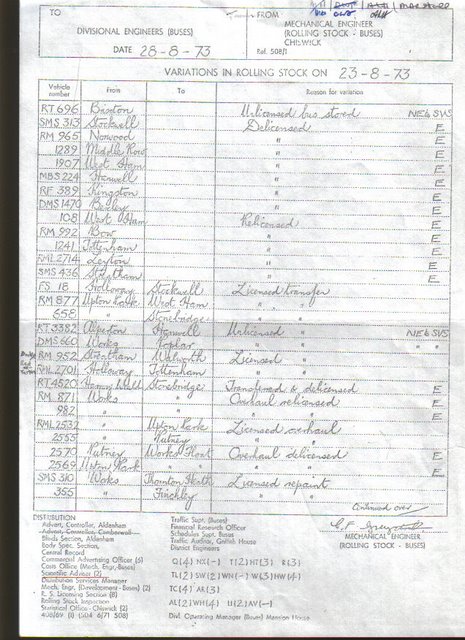 TO
FROM
DIVISIONAL ENGINEERS (BUSES)
MECHANICAL ENGINEER
(ROLLING STOCK - BUSES)
CHISWICK
DATE 28-8-73
Ref. 508/1
VARIATIONS IN ROLLING STOCK ON 23-8-73
Vehicle number From To Reason for variation
RT 696 Brixton Unlicensed bus stored NE6 SVS
SMS 313 Stockwell Delicensed E
RM 965 Norwood " E
1289 Middle Row " E
1907 West Ham " E
MBS 224 Hanwell " E
RF 389 Kingston " E
DMS 1470 Bexley " E
108 West Ham Relicensed E
RM 992 Bow " E
1241 Tottenham " E
RML 2714 Leyton " E
SMS 436 Streatham " E
FS 18 Holloway Stockwell Licensed transfer
RM 877 Upton Park West Ham " "
658 " Stonebridge " "
RT 3382 Alperton Hanwell Unlicensed " NE6 SVS
DMS 660 Works Poplar " " " "
RM 952 Streatham Walworth Licensed " E
RML 2701 Holloway Tottenham " " E
RT 4520 Harrow Weald Stonebridge Transferred & delicensed E
RM 871 Works " Overhaul relicensed E
982 " " " " E
RML 2532 " Upton Park Licensed overhaul
2555 " Putney " "
2570 Putney Works Float Overhaul delicensed E
2569 Upton Park " " " E
SMS 310 Works Thornton Heath Licensed repaint
355 " Finchley " "
Continued over
DISTRIBUTION
Advert. Controller, Aldenham
Advert. Controller, Camberwell
Blinds Section, Aldenham
Body Spec. Section,
Central Record
Commercial Advertising Officer (6)
Costs Office (Mech. Engr. Buses)
Scientific Adviser (2)
Distribution Services Manager
Mech. Engr. (Development - Buses) (2)
R. S. Licensing Section (8)
Rolling Stock Inspection
Statistical Office - Chiswick (2)
Traffic Supt. (Buses)
Financial Research Officer
Schedules Supt. Buses
Traffic Auditor, Griffith House
District Engineers
Q(4) NX(-) T(2) HT(3) R(3)
TL(2) SW(2) WN(-) W(5) HW(4)
TC(4) AR(3)
AL(2) WH(4) U(2) AV(-)
Divl. Operating Manager (Buses) Mansion House
MECHANICAL ENGINEER
(ROLLING STOCK - BUSES)